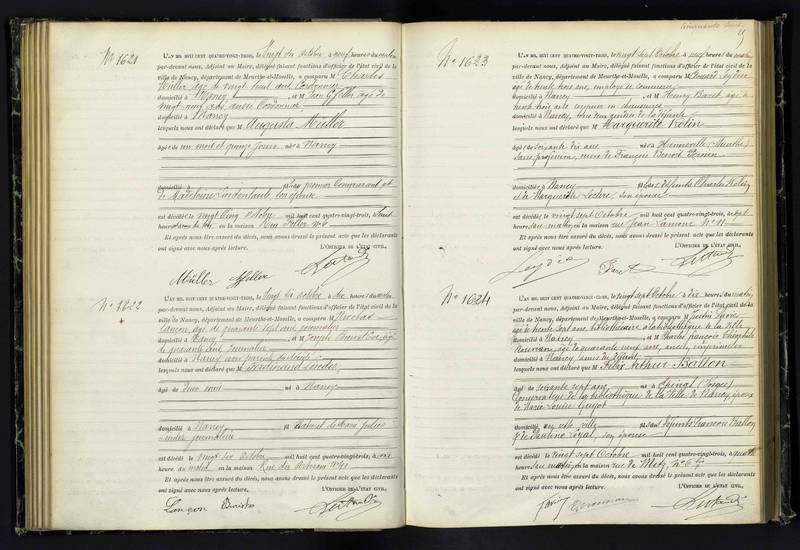 N° 1621
L'AN MIL HUIT CENT QUATRE-VINGT-TROIS, le vingt six octobre à neuf heures du matin
par-devant nous, Adjoint au Maire, délégué faisant fonctions d'officier de l'état civil de la
ville de Nancy, département de Meurthe-et-Moselle, a comparu M Charles
Müller, âgé de vingt huit ans Cordonnier
domicilié à Nancy, et M Jean âgé de
vingt neuf ans, aussi Cordonnier
domicilié à Nancy
lesquels nous ont déclaré que M Augusta Müller
âgé de un mois et quinze jours né à Nancy
domicilié à fils du premier Comparant, et
de Madeleine son épouse
est décédé le vingt cinq octobre mil huit cent quatre-vingt-trois, à huit
heures en la maison Rue
Et après nous être assuré du décès, nous avons dressé le présent acte que les déclarants
ont signé avec nous après lecture. L'OFFICIER DE L'ÉTAT CIVIL,
Müller
N° 1622
L'AN MIL HUIT CENT QUATRE-VINGT-TROIS, le vingt six octobre à dix heures du matin
par-devant nous, Adjoint au Maire, délégué faisant fonctions d'officier de l'état civil de la
ville de Nancy, département de Meurthe-et-Moselle, a comparu M Nicolas
Lançon, âgé de quarante sept ans journalier
domicilié à Nancy, et M Joseph âgé
de quarante ans Journalier
domicilié à Nancy non parents du décédé
lesquels nous ont déclaré que M Ferdinand
âgé de deux mois né à Nancy
domicilié à Nancy fils naturel de Marie Julie
journalière
est décédé le vingt six octobre mil huit cent quatre-vingt-trois, à une
heure du matin en la maison Rue du
Et après nous être assuré du décès, nous avons dressé le présent acte que les déclarants
ont signé avec nous après lecture. L'OFFICIER DE L'ÉTAT CIVIL,
Lançon
N° 1623
L'AN MIL HUIT CENT QUATRE-VINGT-TROIS, le vingt sept Octobre à neuf heures du matin
par-devant nous, Adjoint au Maire, délégué faisant fonctions d'officier de l'état civil de la
ville de Nancy, département de Meurthe-et-Moselle, a comparu M
âgé de trente trois ans, employé de commerce
domicilié à Nancy, et M Henry âgé de
trente huit ans
domicilié à Nancy, tous deux gendres de la défunte
lesquels nous ont déclaré que M Marguerite Rolin
âgé de soixante dix ans née à (Meurthe)
sans profession, veuve de François Benoit
domicilié à Nancy fille des défunts Charles Rolin
et de Marguerite Leclerc, son épouse
est décédé le vingt sept Octobre mil huit cent quatre-vingt-trois, à sept
heures du matin en la maison rue Jean Lamour N° 11
Et après nous être assuré du décès, nous avons dressé le présent acte que les déclarants
ont signé avec nous après lecture. L'OFFICIER DE L'ÉTAT CIVIL,
N° 1624
L'AN MIL HUIT CENT QUATRE-VINGT-TROIS, le vingt sept Octobre à dix heures du matin,
par-devant nous, Adjoint au Maire, délégué faisant fonctions d'officier de l'état civil de la
ville de Nancy, département de Meurthe-et-Moselle, a comparu M Justin Favier
âgé de trente sept ans, bibliothécaire à la bibliothèque de la ville
domicilié à Nancy, et M Charles François Théophile
âgé de quarante neuf ans, ancien imprimeur
domicilié à Nancy, amis du défunt
lesquels nous ont déclaré que M Félix Arthur Ballon
âgé de soixante sept ans né à Epinal (Vosges)
Conservateur de la bibliothèque de la Ville de Nancy, époux
de Marie Louise Guyot
domicilié en cette ville fils des défunts François Ballon
et de Pauline Loyal, son épouse
est décédé le vingt sept Octobre mil huit cent quatre-vingt-trois, à quatre
heures du matin en la maison rue de Metz, N° 6 bis
Et après nous être assuré du décès, nous avons dressé le présent acte que les déclarants
ont signé avec nous après lecture. L'OFFICIER DE L'ÉTAT CIVIL,